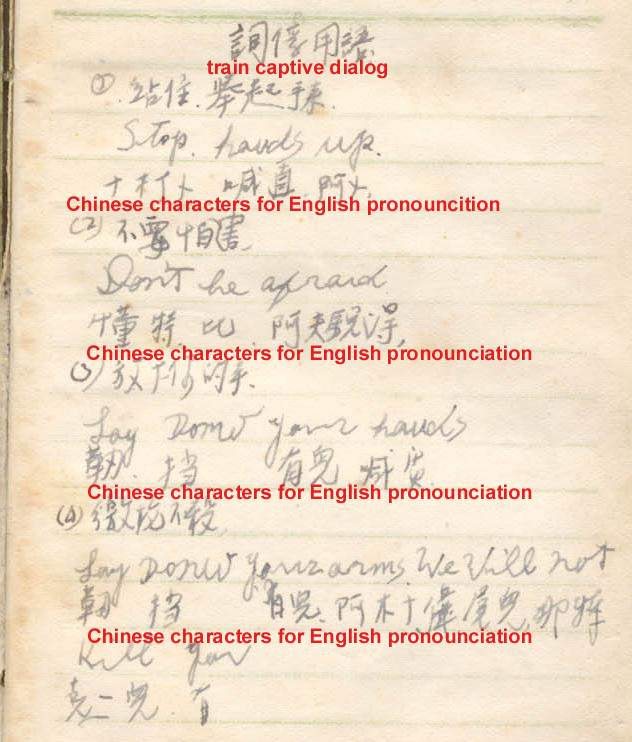 詞俘用語
train captive dialog
① 站住.舉起手來.
Stop. hands up.
喊直 阿
Chinese characters for English pronouncition
(2) 不要怕害
Don't be afraid
懂特.比.阿夫銳得,
Chinese characters for English pronounciation
(3) 放下你的手.
Lay Down your hands
擋 有兒
Chinese characters for English pronounciation
(4) 繳 不殺
Lay Down your arms. We Will not
擋 有兒.阿木 尾兒.那特
Chinese characters for English pronounciation
Kill You
克二兒.有